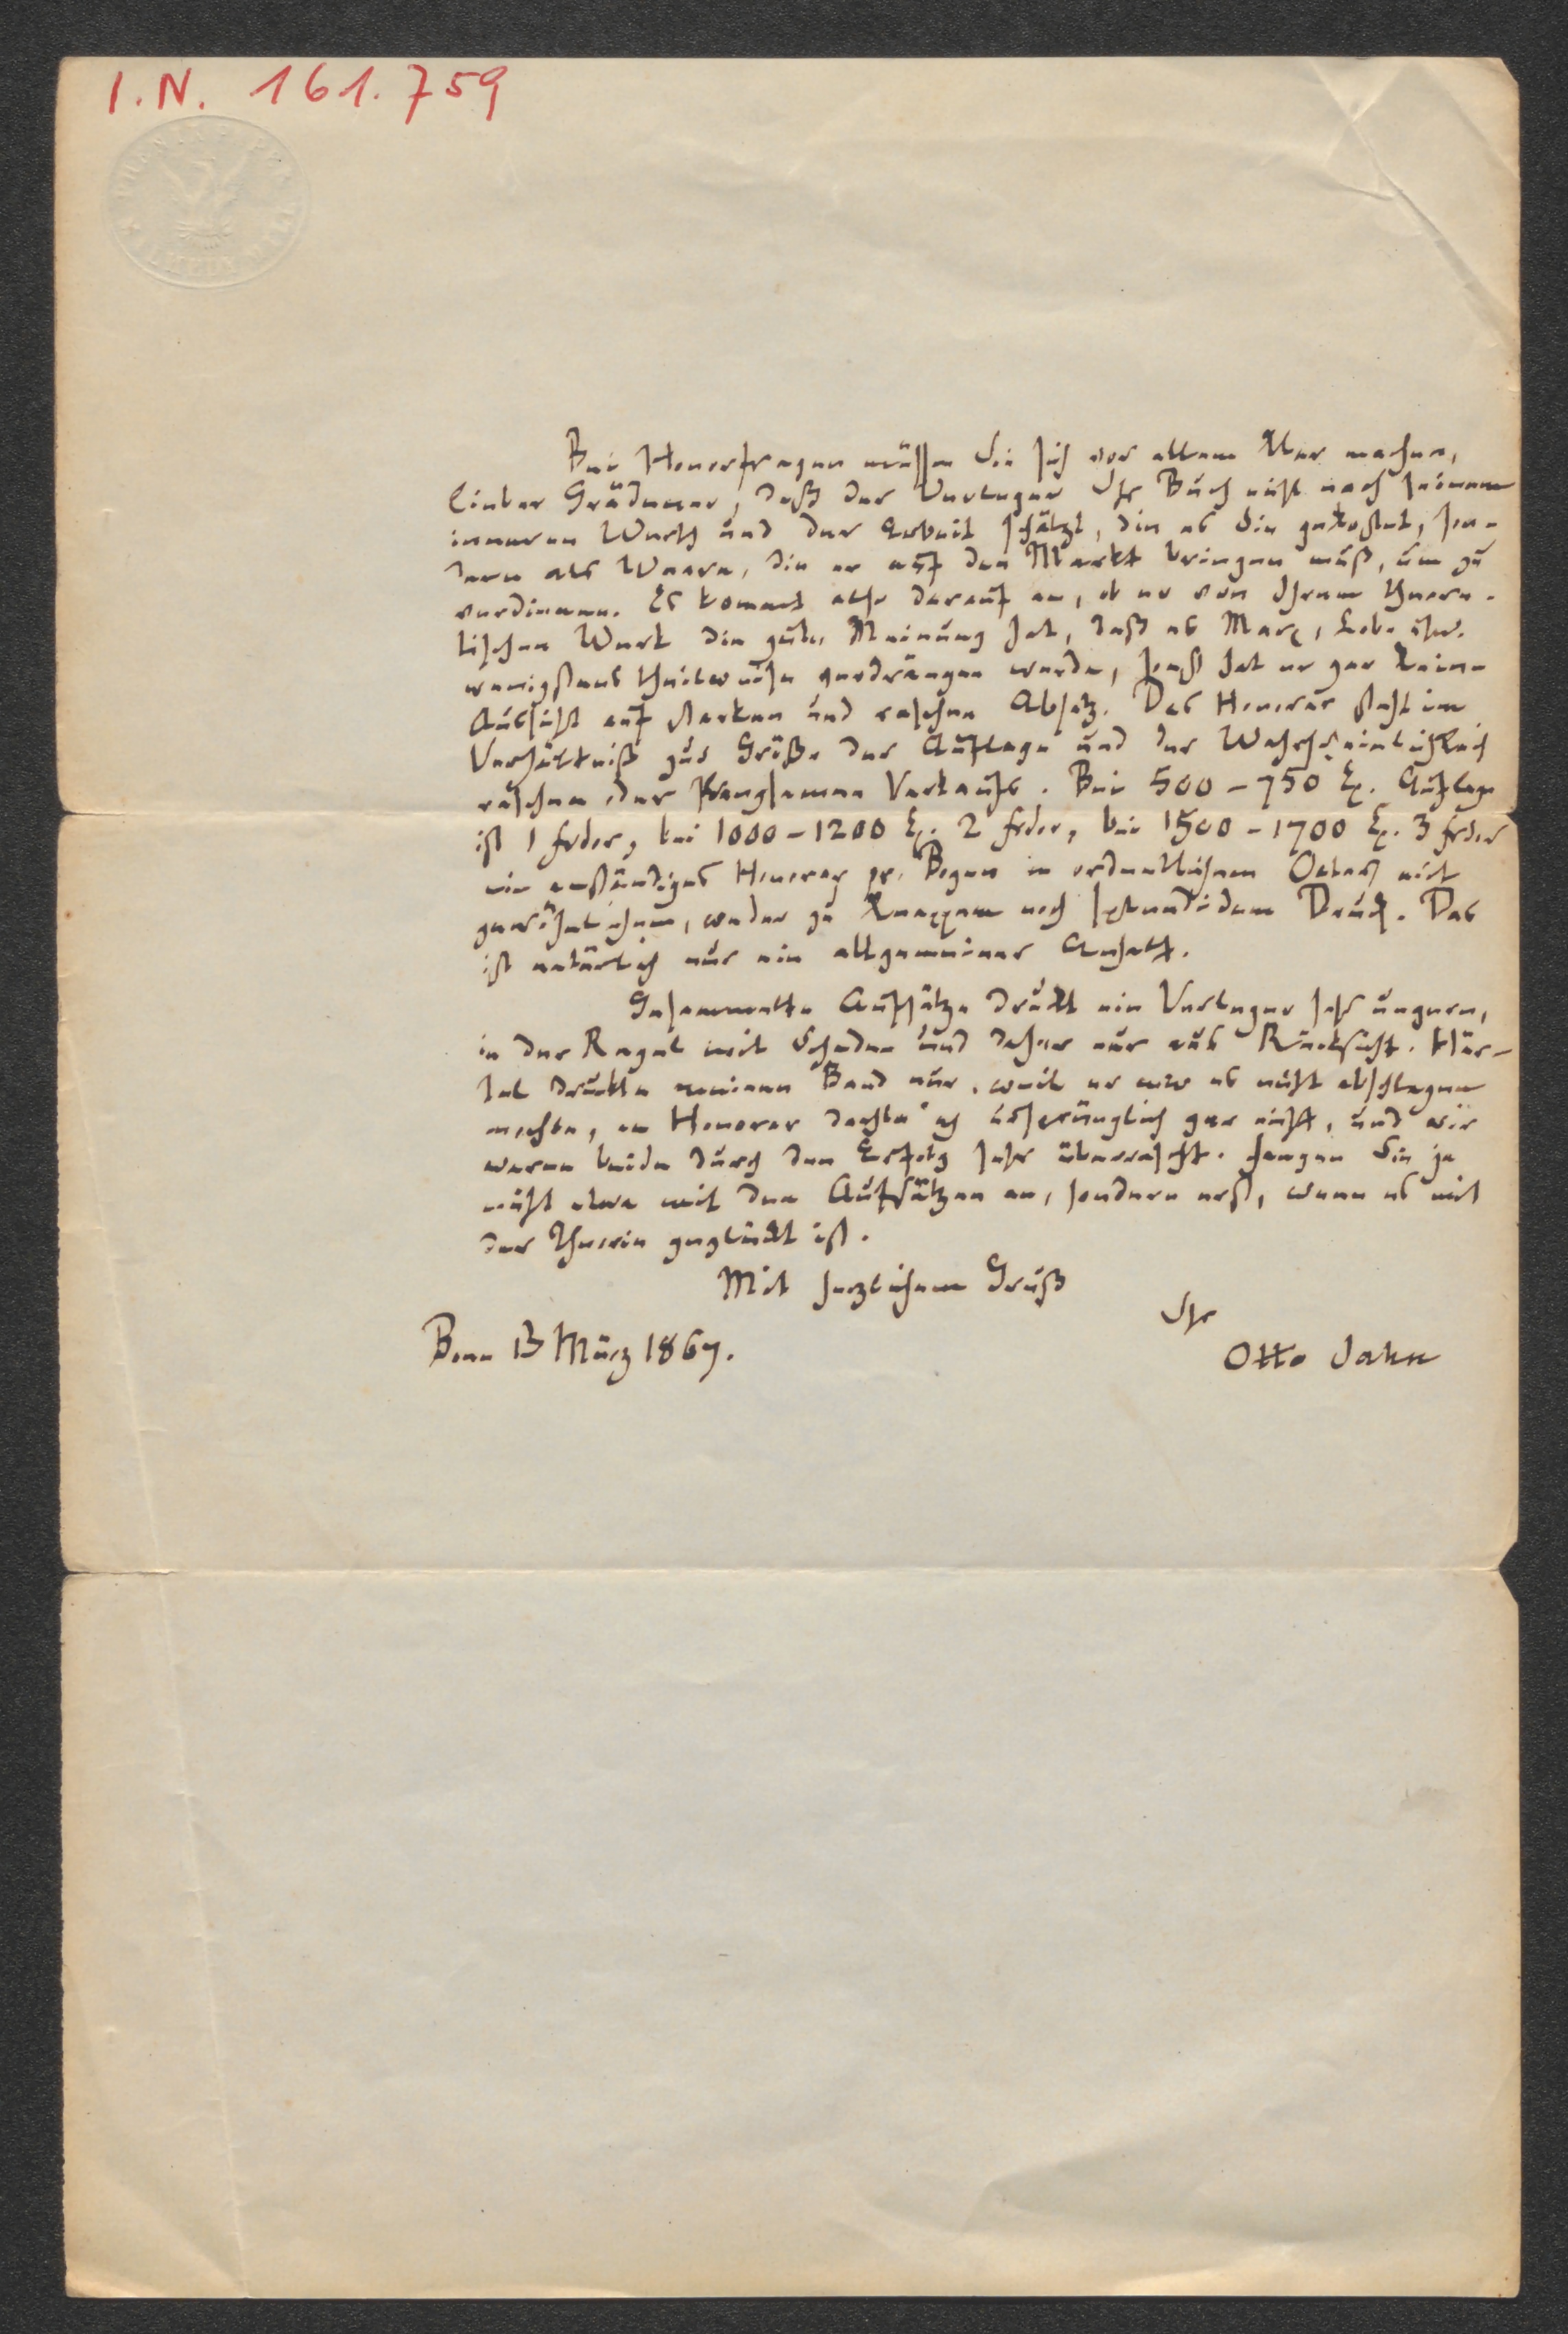 I.N. 161.759
Bei Honorarfragen müssen Sie sich vor allem klar machen,
lieber Grädener, daß der Verleger Ihr Buch nicht nach seinem
inneren Werth und der Arbeit schätzt, die es Sie gekostet, son-
dern als Waare, die er auf den Markt bringen muß, um zu
verdienen. Es kommt also darauf an, ob er von Ihrem theore-
tischen Werk die gute Meinung hat, daß es Marx, Lobe usw.
wenigstens theilweise verdrängen werde, sonst hat er gar keine
Aussicht auf starken und raschen Absatz. Das Honorar steht im
Verhältniß zur Größe der Auflage und der Wahrscheinlichkeit
raschen oder langsamen Verkaufs. Bei 500–750 Ex. Auflage
ist 1 frdor, bei 1000–1200 Ex. 2 frdor, bei 1500–1700 Ex. 3 frdor
ein anständiges Honorar pr. Bogen in ordentlichem Octav mit
gewöhnlichem, weder zu knappem noch splendidem Druck. Das
ist natürlich nur ein allgemeiner Anhalt.
Gesammelte Aufsätze druckt ein Verleger sehr ungern,
in der Regel mit Schaden und daher nur aus Rücksicht. Här-
tel druckte meinen Band nur, weil er mir es nicht abschlagen
mochte, an Honorar dachte ich ursprünglich gar nicht, und wir
waren beide durch den Erfolg sehr überrascht. Fangen Sie ja
nicht etwa mit den Aufsätzen an, sondern erst, wenn es mit
der Theorie geglückt ist.
Mit herzlichem Gruß
Ihr
Bonn 13 März 1867.
Otto Jahn